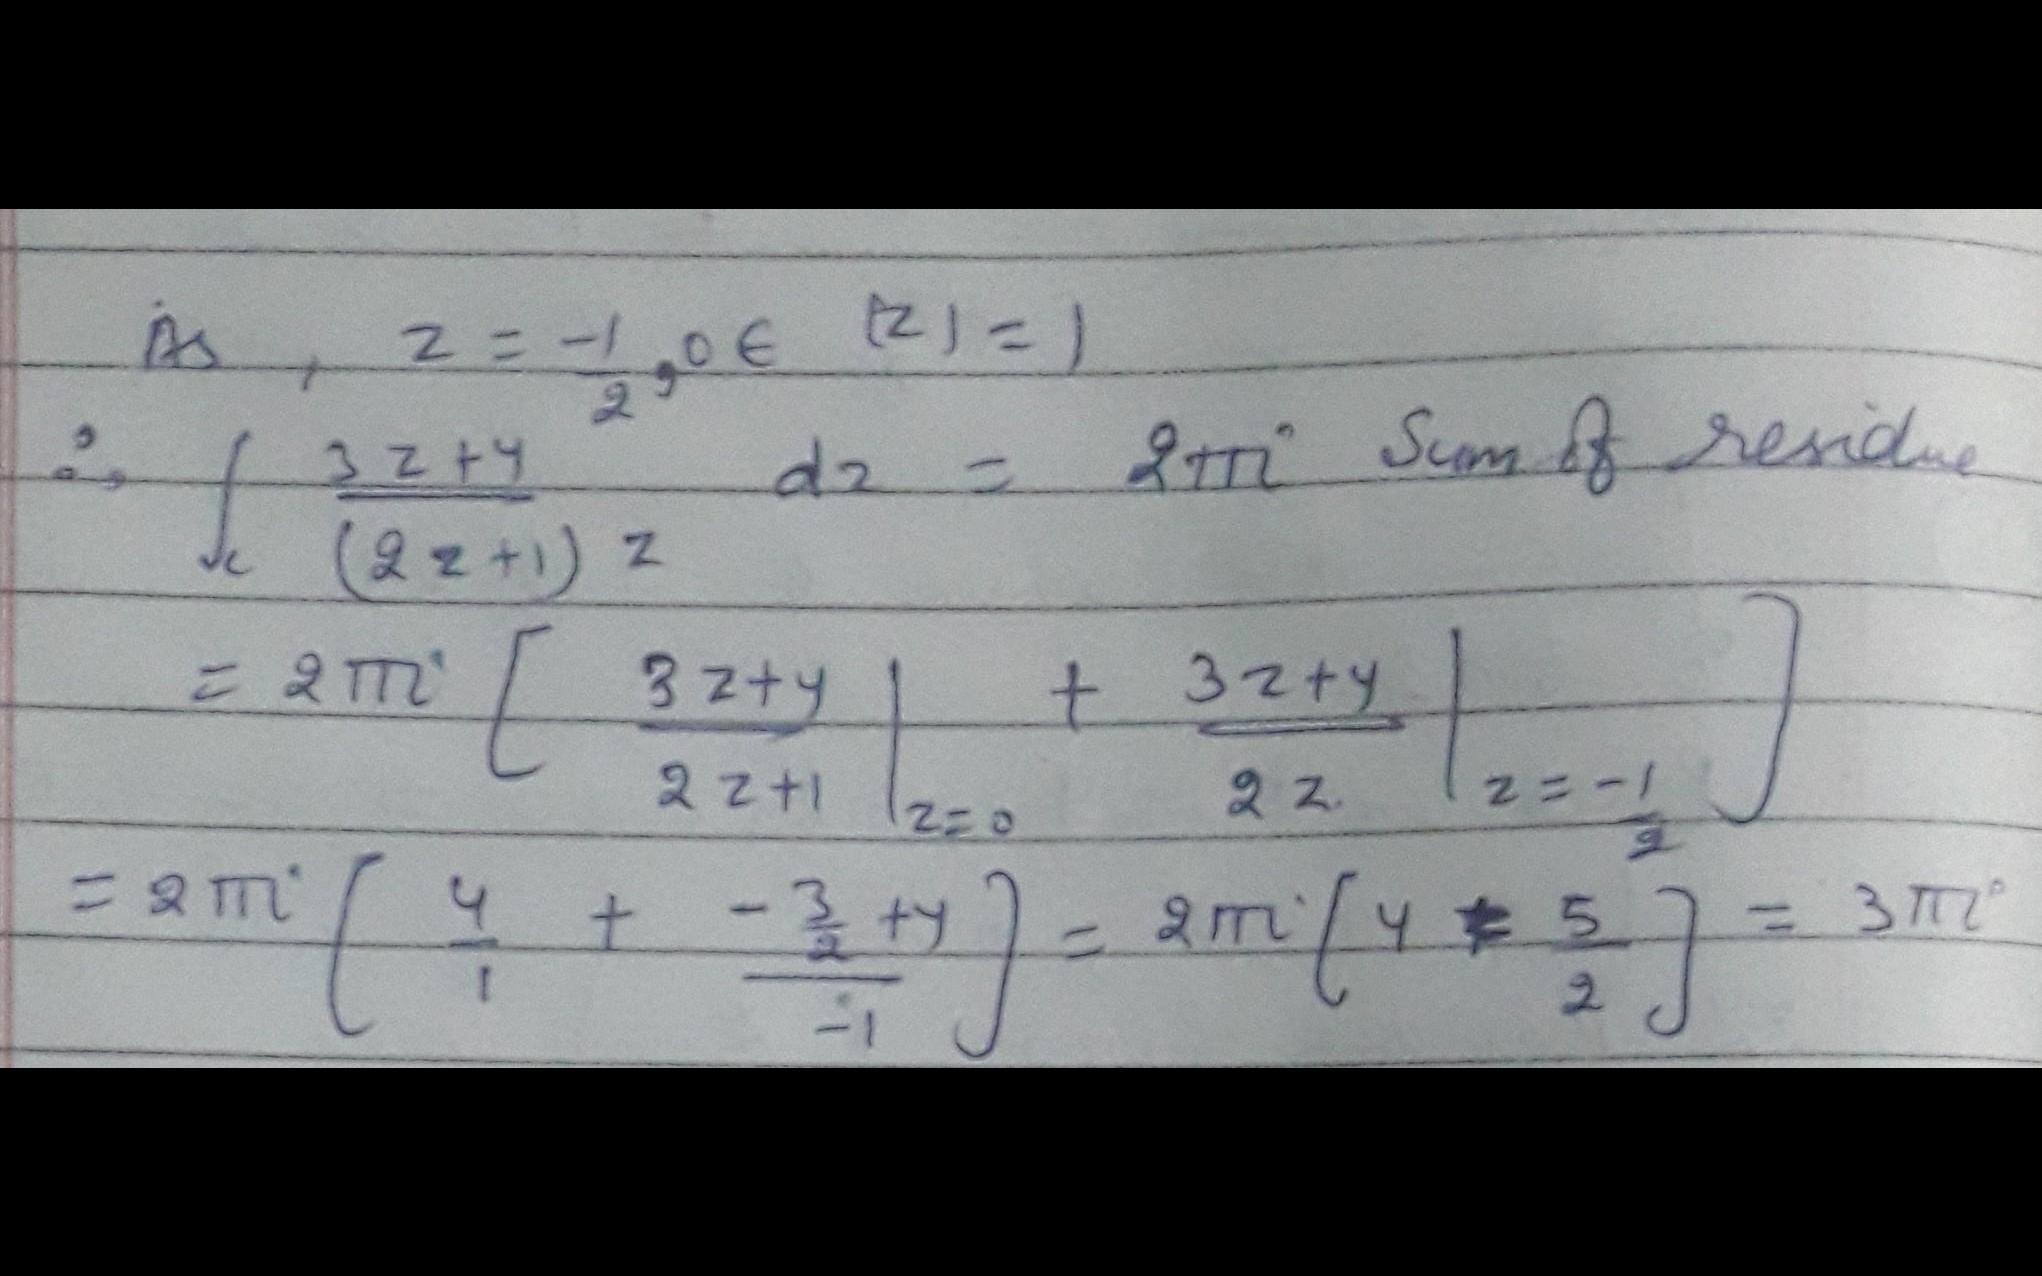 As, z = -1/2, 0 ∈ |z| = 1
∴, ∫c (3z+4)/((2z+1)z) dz = 2πi Sum of residue
= 2πi [ (3z+4)/(2z+1) |z=0 + (3z+4)/(2z) |z=-1/2 ]
= 2πi [ 4/1 + (-3/2+4)/(-1) ] = 2πi [ 4 - 5/2 ] = 3πi